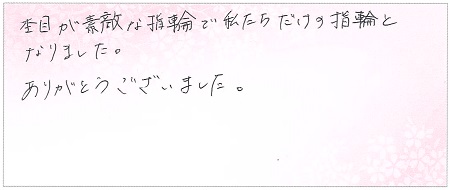 杢目が素敵な指輪で私たちだけの指輪と
なりました。
ありがとうございました。